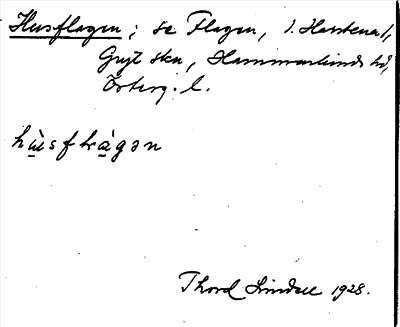 Husflagen; se Flagen, i. Harstena,
Gryt skn, Hammarkinds hd,
Österg. l.
hùsflàgən
Thord Lindell 1928.